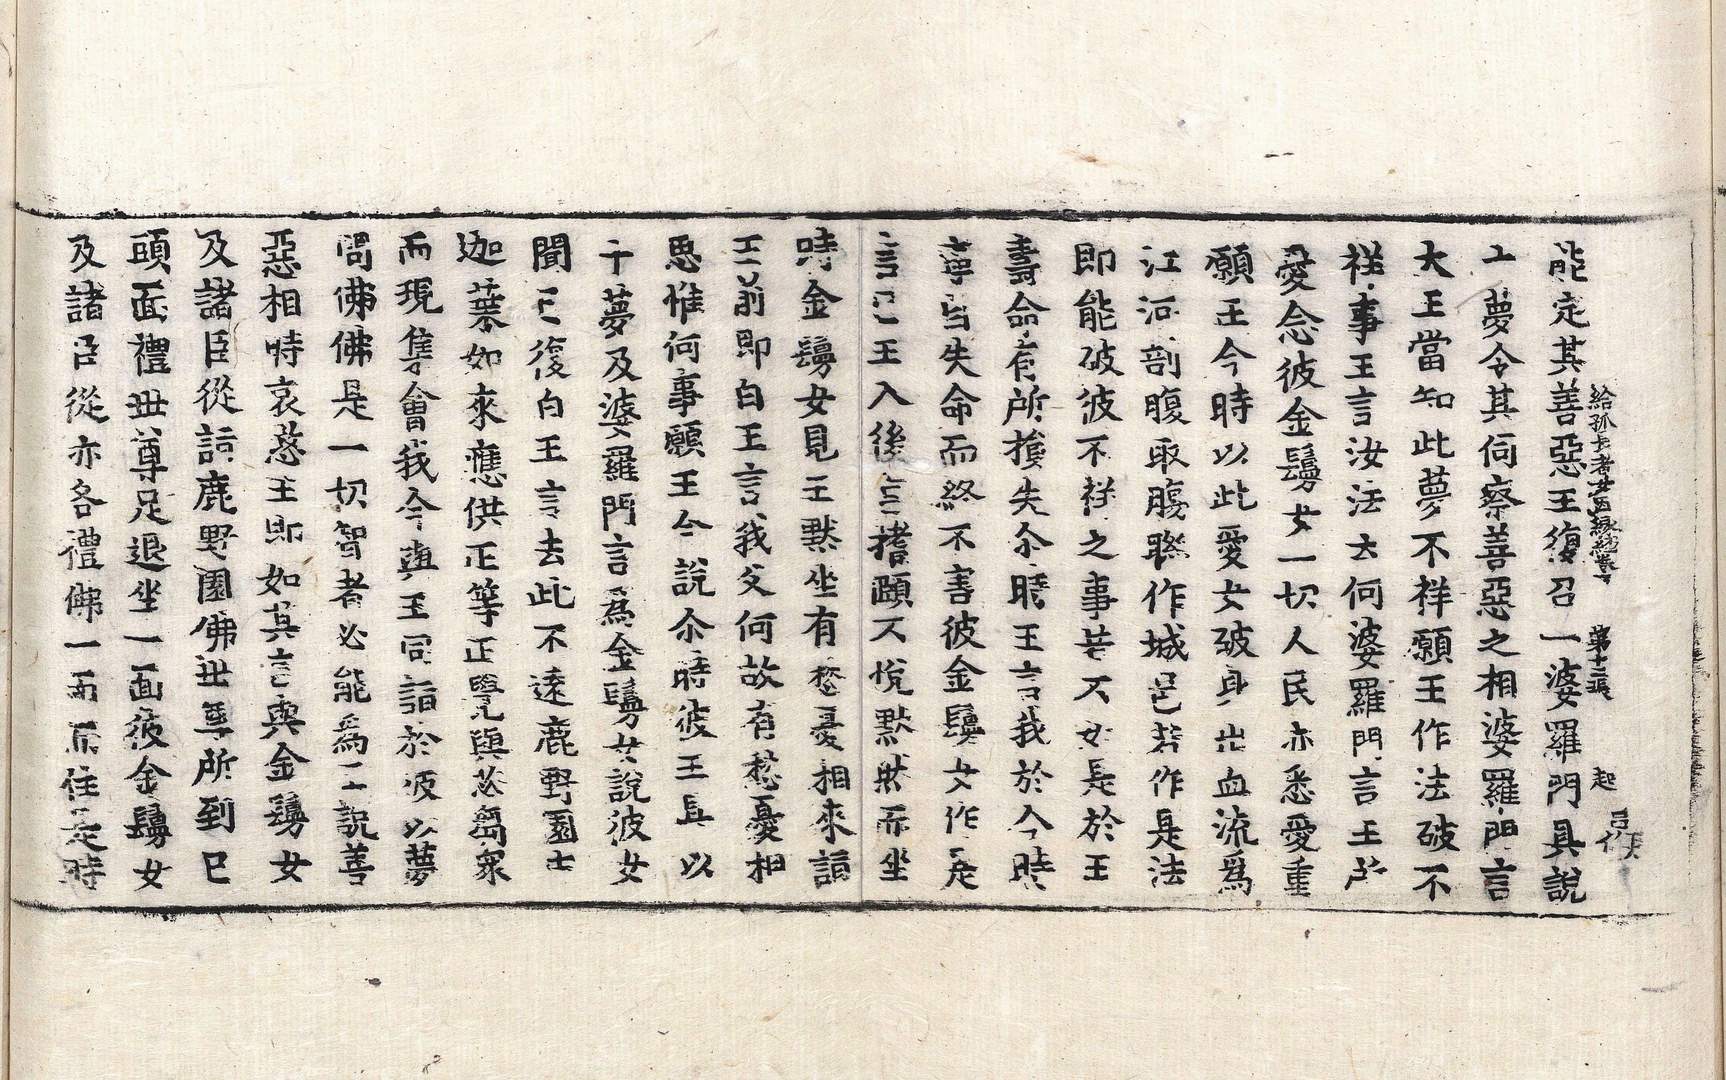 給孤長者女得度因緣經卷下 第十二張 起
能定其善惡王復召一婆羅門具說
十夢令其伺察善惡之相婆羅門言
大王當知此夢不祥願王作法破不
祥事王言汝法云何婆羅門言王所
愛念彼金鬘女一切人民亦悉愛重
願王今時以此愛女破身出血流爲
江河剖腹取腸聯作城邑若作是法
即能破彼不祥之事若不如是於王
壽命有所損失尒時王言我於今時
寧當失命而終不害彼金鬘女作是
言已王入後宮搘頤不悅默然而坐
時金鬘女見王默坐有愁憂相來詣
王前即白王言我父何故有愁憂相
思惟何事願王今說尒時彼王具以
十夢及婆羅門言爲金鬘女說彼女
聞已復白王言去此不遠鹿野園中
迦葉如來應供正等正覺與苾芻衆
而現集會我今與王同詣於彼以夢
問佛佛是一切智者必能爲王說善
惡相時哀愍王即如其言與金鬘女
及諸臣從詣鹿野園佛世尊所到已
頭面禮世尊足退坐一面彼金鬘女
及諸臣從亦各禮佛一面而住是時